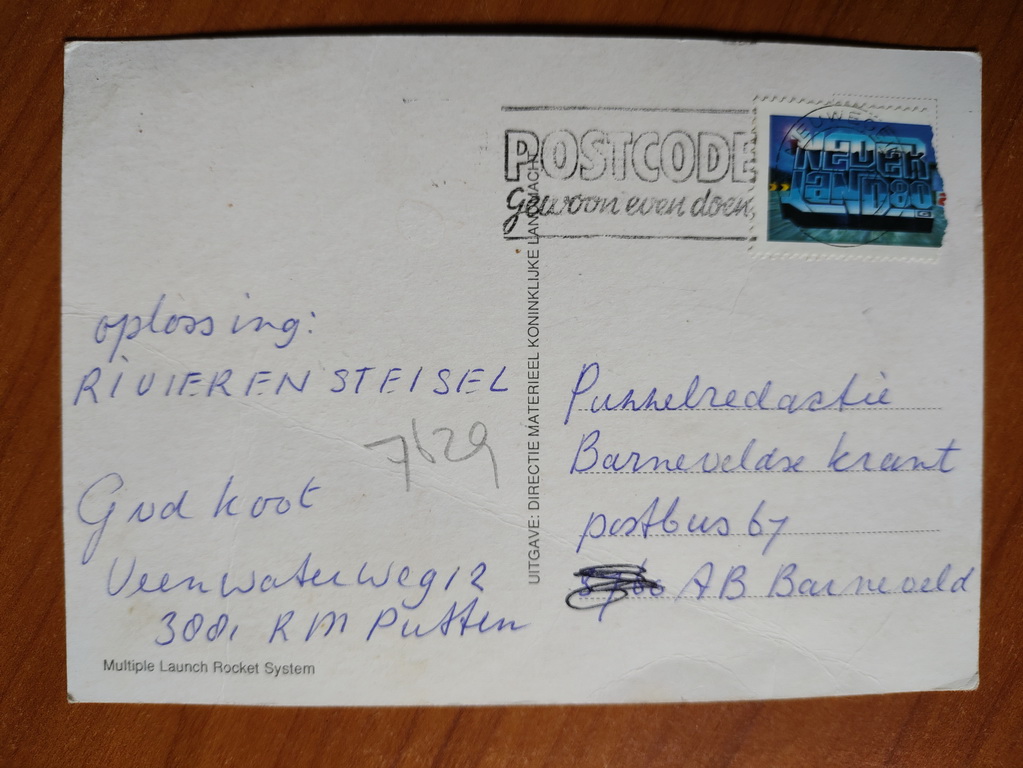 POSTCODE
Gewoon even doen
NEDER
LAND 80
UITGAVE: DIRECTIE MATERIEEL KONINKLIJKE LANDMACHT
oplossing:
RIVIEREN STEISEL
7629
Gud koot
Veenwaterweg 12
3881 RM Putten
Multiple Launch Rocket System
Puzzelredactie
Barneveldse krant
postbus 67
AB Barneveld